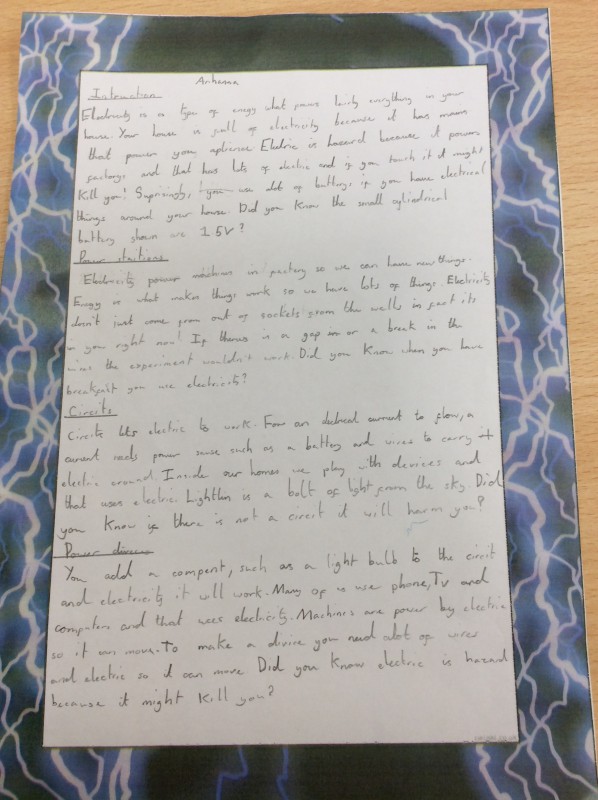 Arhenna
Intruction
Electricity is a type of enegy what powers lairly everything in your
house. Your house is full of electricity because it has mains
that power your aplience. Eletric is hazard because it powers
factorys and that has lots of electric and if you touch it it might
Kill you! Suprisingly, you use alot of batterys if you have electrical
things around your house. Did you know the small cylindrical
battery shown are 1.5V?
Power staitions
Electricity power machines in factory so we can have new things.
Enegy is what makes things work so we have lots of things. Electricity
doesn't just come from out of sockets from the walls in fact its
in you right now! If theres is a gap in or a break in the
wires the experiment wouldn't work. Did you know when you have
breakfast you use electricity?
Circits
Circits lets electric to work. For an electrical current to flow, a
current needs power sorse such as a battery and wires to carry it
electric around. Inside our homes we play with devices and
that uses electric. Lightnin is a bolt of light from the sky. Did
you know if there is not a circit it will harm you?
Power divices
You add a compent, such as a light bulb to the circit
and electricity it will work. Many of us use phone, TV and
computers and that uses elecricity. Machines are power by electric
so it can move. To make a divice you need alot of wires
and electric so it can move Did you know electric is hazard
because it might kill you?